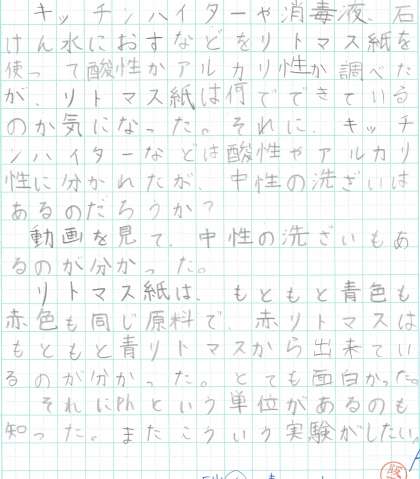 キッチンハイターや消毒液、石
けん水におすなどをリトマス紙を
使って酸性かアルカリ性か調べた
が、リトマス紙は何でできている
のか気になった。それに、キッチ
ンハイターなどは酸性やアルカリ
性に分かれたが、中性の洗ざいは
あるのだろうか?
動画を見て、中性の洗ざいもあ
るのが分かった。
リトマス紙は、もともと青色も
赤色も同じ原料で、赤リトマスは
もともと青リトマスから出来てい
るのが分かった。とても面白かった。
それにPhという単位があるのも
知った。またこういう実験がしたい。